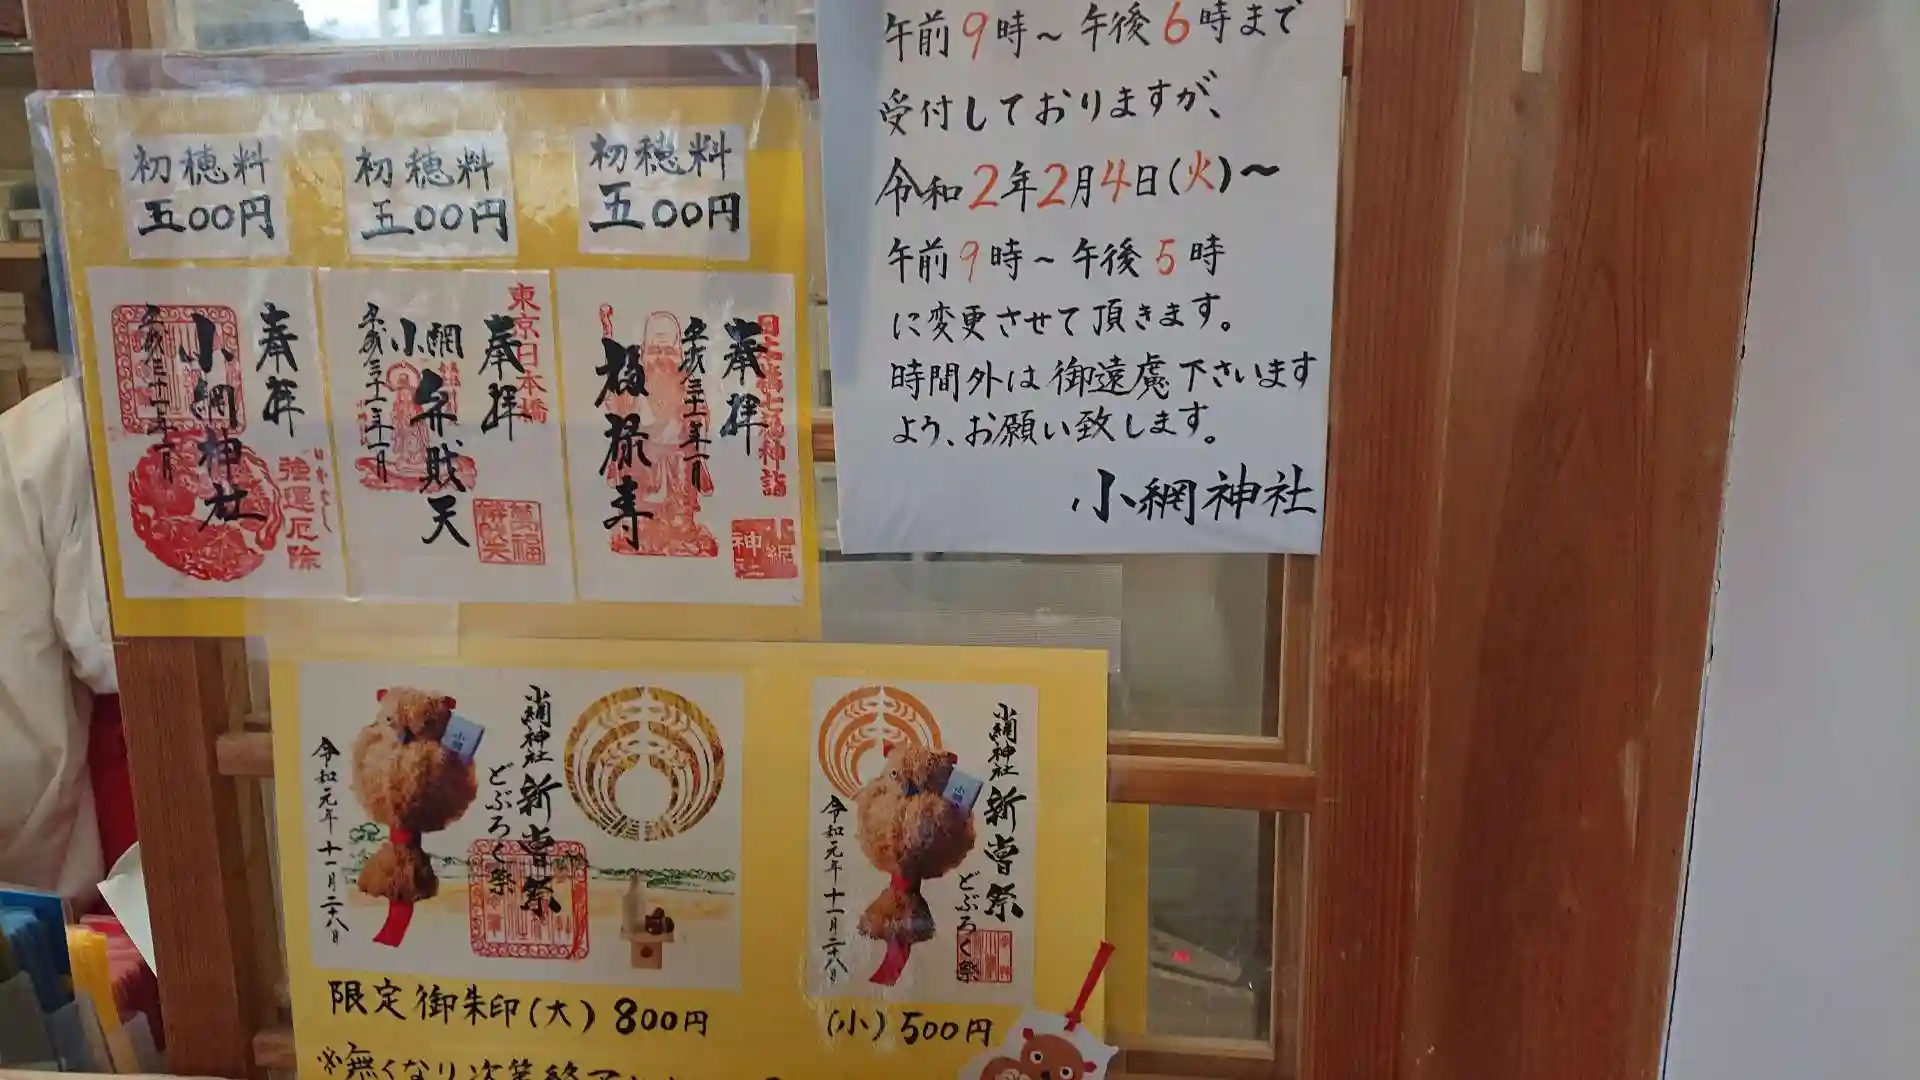 初穂料
五〇〇円
初穂料
五〇〇円
初穂料
五〇〇円
奉拝
小網神社
平成三十一年一月
強運厄除
東京日本橋
奉拝
小網
弁財天
平成三十一年一月
萬福
舟乗弁天
奉拝
平成三十一年一月
福禄寿
小網
神社
午前9時～午後6時まで
受付しておりますが、
令和2年2月4日(火)～
午前9時～午後5時
に変更させて頂きます。
時間外は御遠慮下さいます
よう、お願い致します。
小網神社
小網神社
新嘗祭
どぶろく祭
令和元年十一月二十八日
限定御朱印(大) 800円
小網神社
新嘗祭
どぶろく祭
令和元年十一月二十八日
(小) 500円
※無くなり次第終了